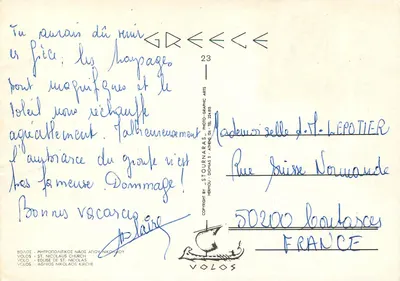 GREECE
23
Tu aurais dû venir
en Grèce, les paysages
sont magnifiques et le
soleil nous réchauffe
agréablement. Malheureusement
l'ambiance du groupe n'est
pas fameuse. Dommage!
Bonnes vacances
Claire
Mademoiselle A.M. LEPOTIER
Rue Suisse Normande
50200 Coutances
FRANCE
COPYRIGHT BY STOURNARAS - PHOTO GRAPHIC ARTS
VOLOS - ST. NICOLAUS CHURCH
VOLOS - EGLISE DE ST. NICOLAS
VOLOS - AGHIOS NIKOLAOS KIRCHE
VOLOS